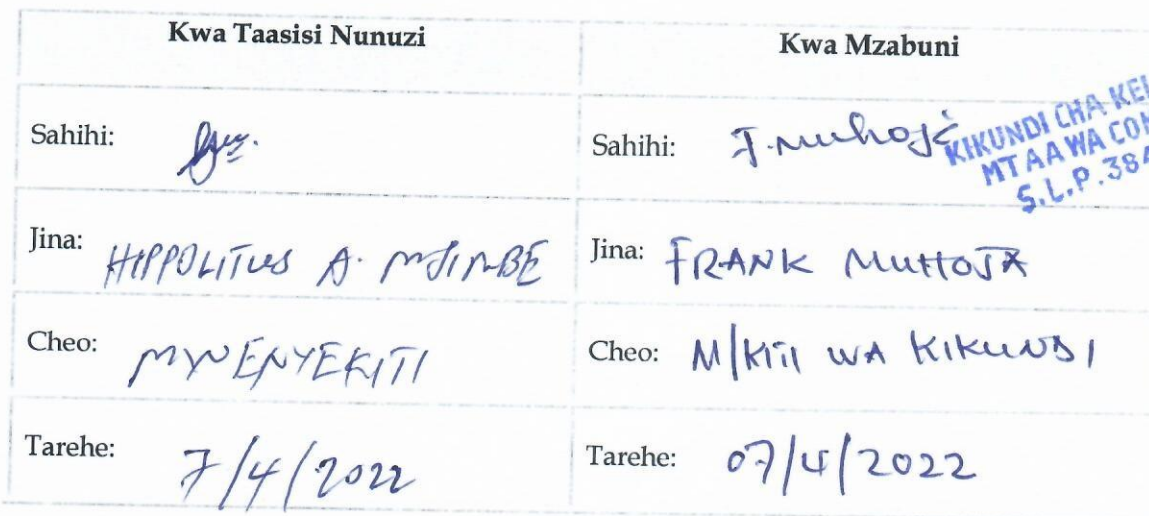 Kwa Taasisi Nunuzi
Kwa Mzabuni
Sahihi:
Sahihi: F. Muhoja
KIKUNDI CHA KEL
MTAA WA CON
S.L.P. 384
Jina: HIPPOLITUS A. MJIMBE
Jina: FRANK MUHOJA
Cheo: MWENYEKITI
Cheo: M/KITI WA KIKUNDI
Tarehe: 7/4/2022
Tarehe: 07/4/2022